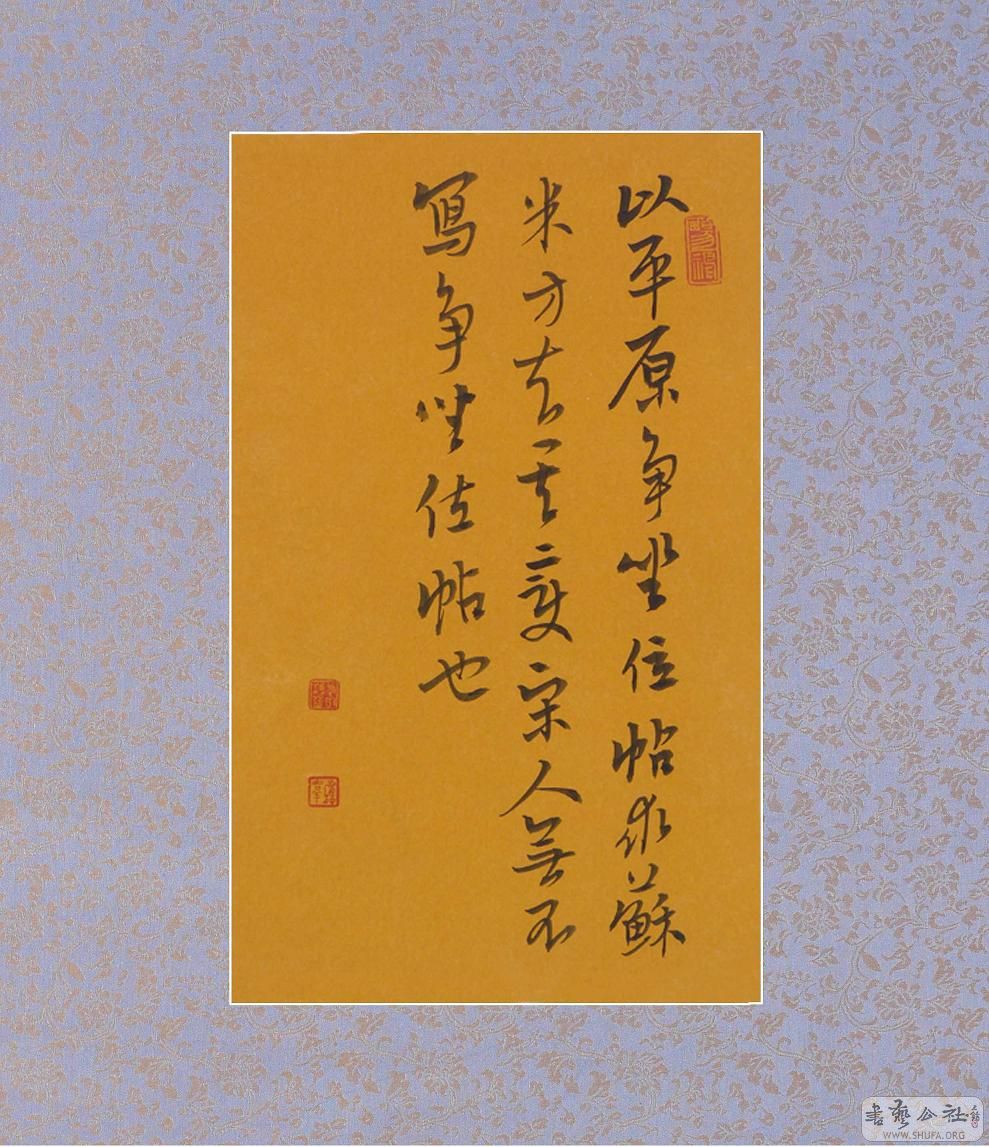 以平原争坐位帖求蘇
米方知其變宋人無不
寫争坐位帖也
書藝公社
WWW.SHUFA.ORG